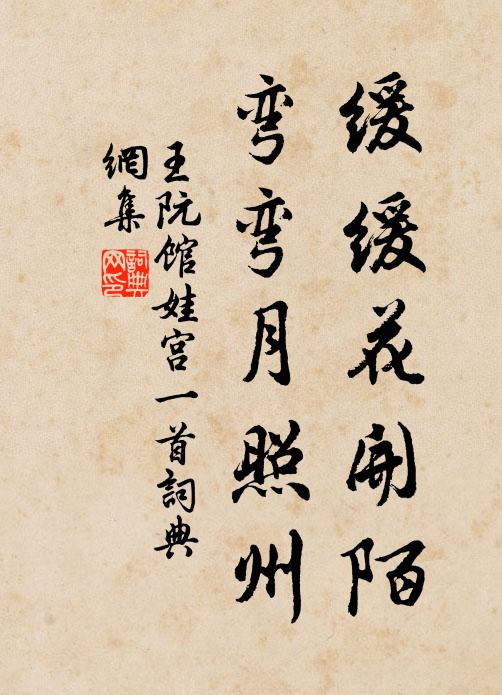 缓缓花开陌
弯弯月照州
王阮馆娃宫一首詞典
網集
詞典網印